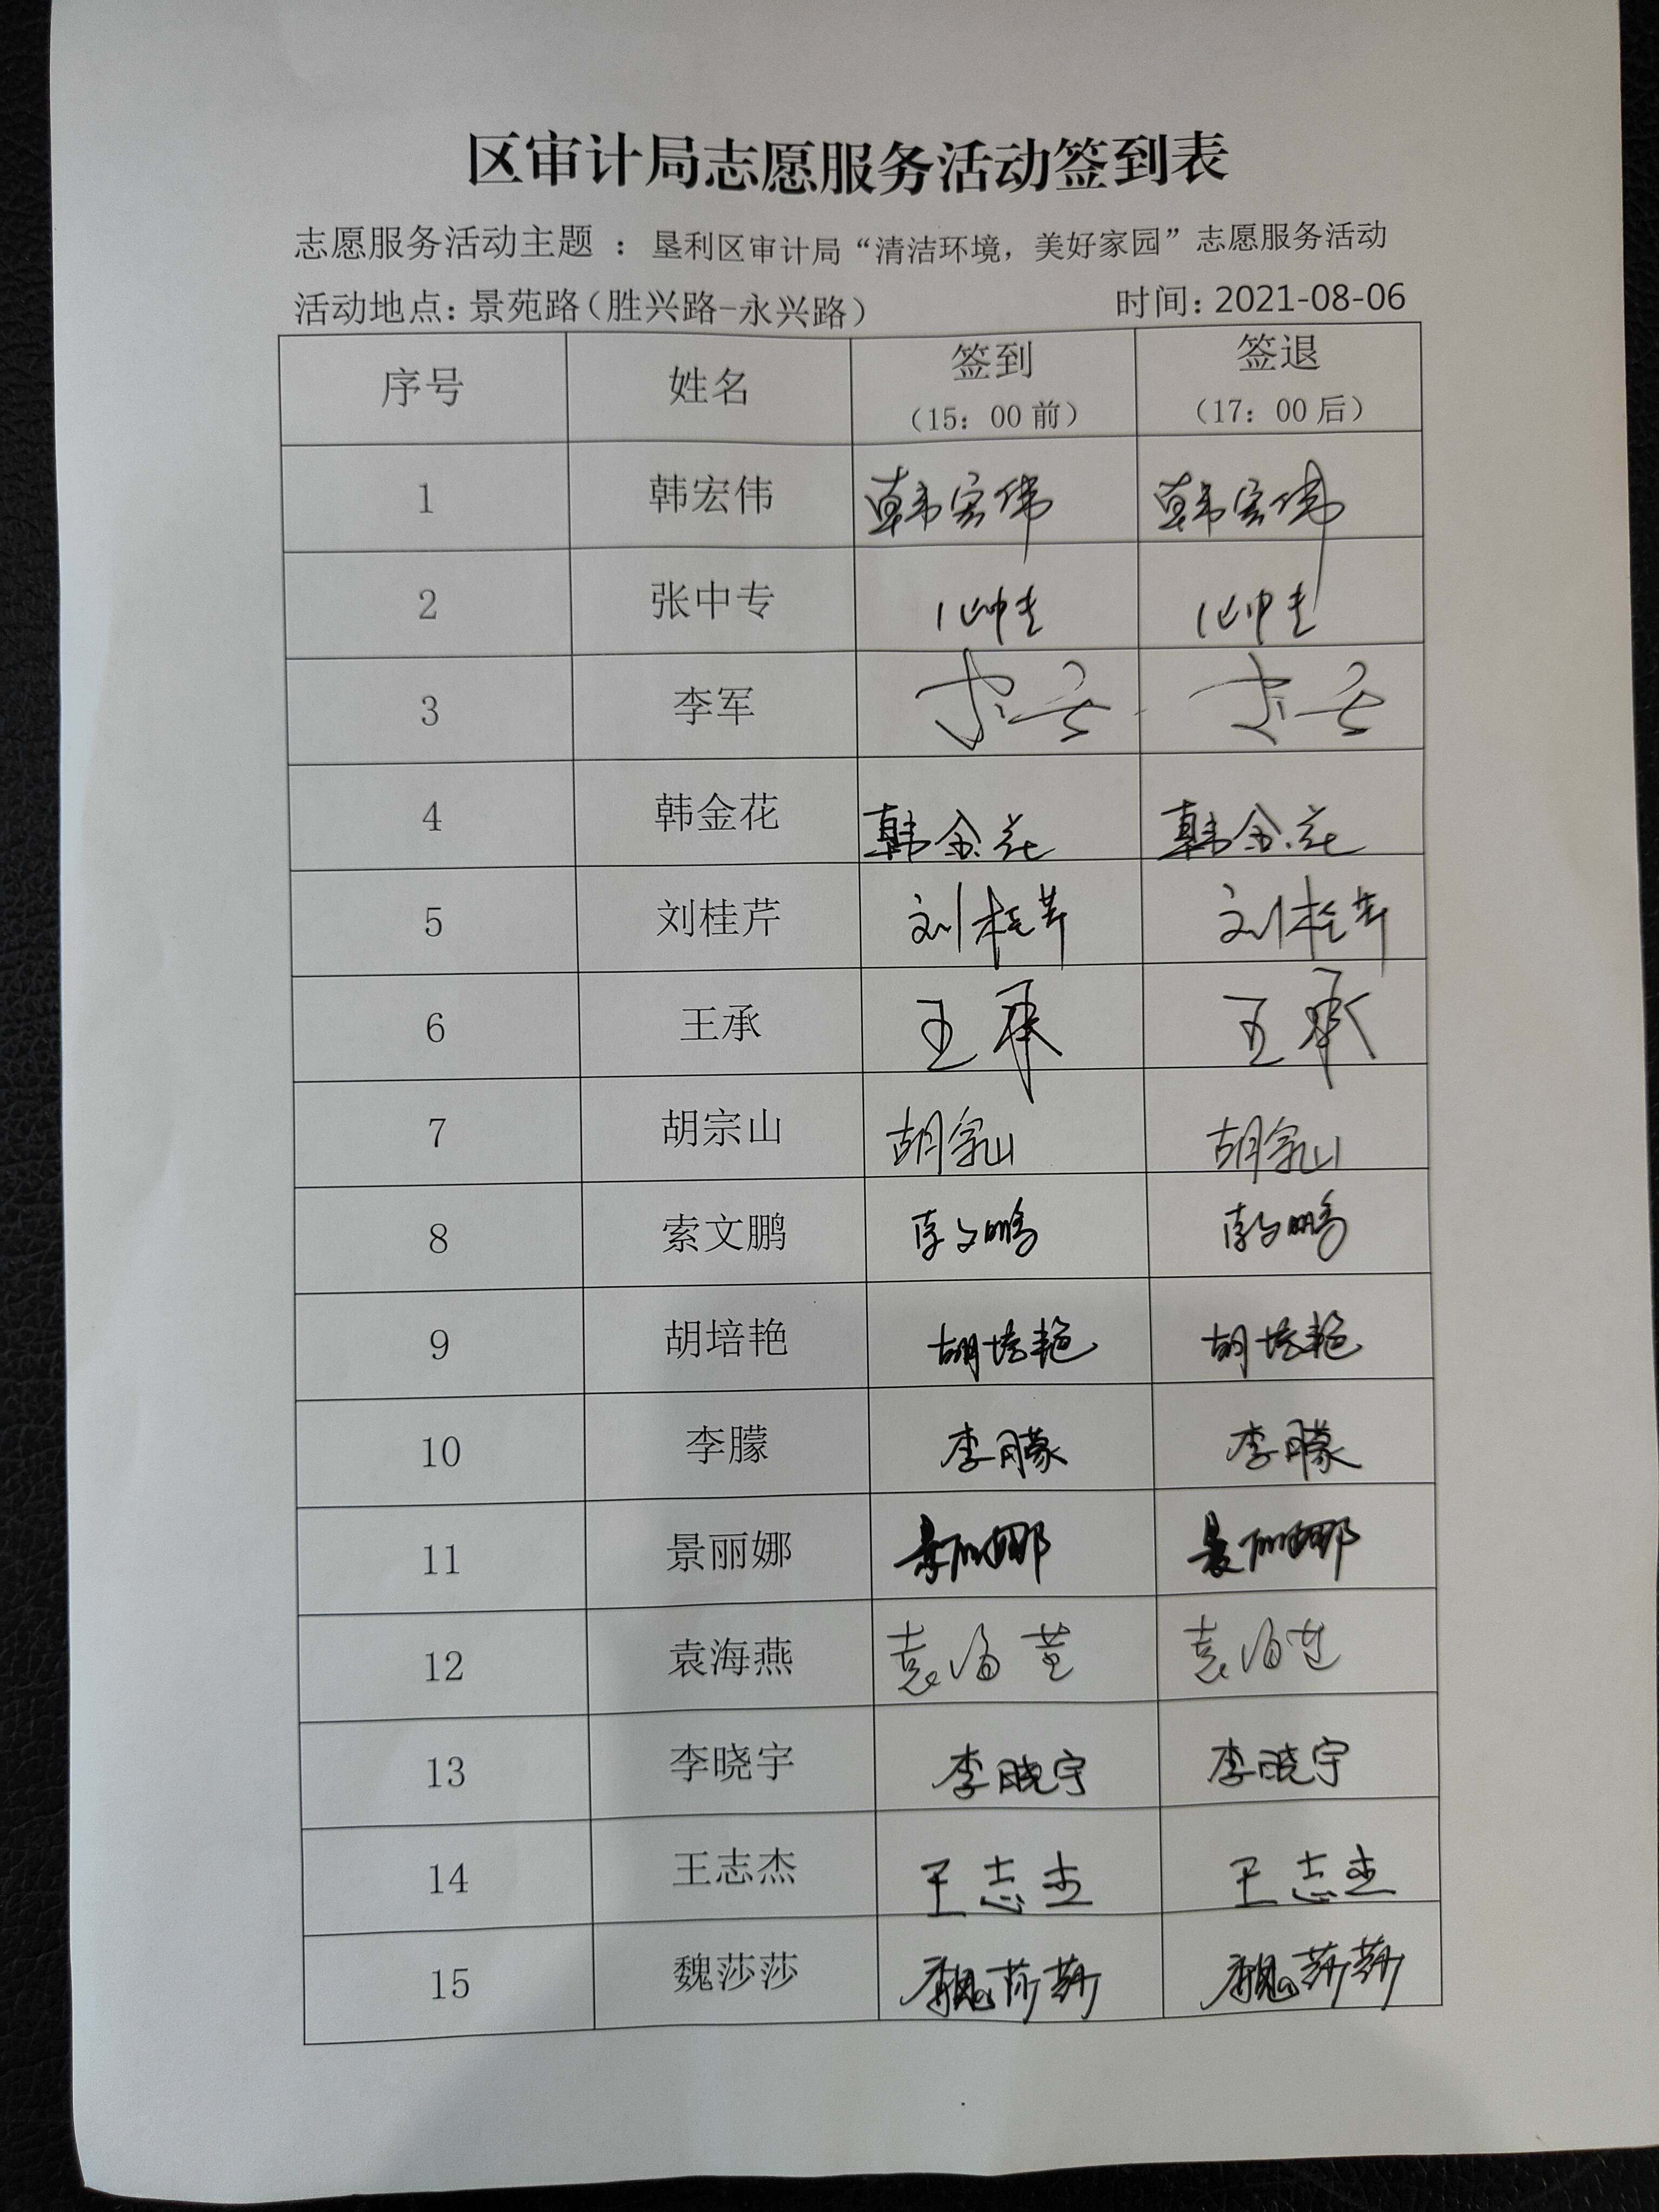 区审计局志愿服务活动签到表
志愿服务活动主题 : 垦利区审计局“清洁环境，美好家园”志愿服务活动
活动地点：景苑路（胜兴路-永兴路） 时间：2021-08-06
序号 姓名 签到 签退
（15：00 前） （17：00 后）
1 韩宏伟 韩宏伟 韩宏伟
2 张中专
3 李军 李军 李军
4 韩金花 韩金花 韩金花
5 刘桂芹 刘桂芹 刘桂芹
6 王承 王承 王承
7 胡宗山 胡宗山 胡宗山
8 索文鹏 索文鹏 索文鹏
9 胡培艳 胡培艳 胡培艳
10 李朦 李朦 李朦
11 景丽娜 景丽娜 景丽娜
12 袁海燕 袁海燕 袁海燕
13 李晓宇 李晓宇 李晓宇
14 王志杰 王志杰 王志杰
15 魏莎莎 魏莎莎 魏莎莎